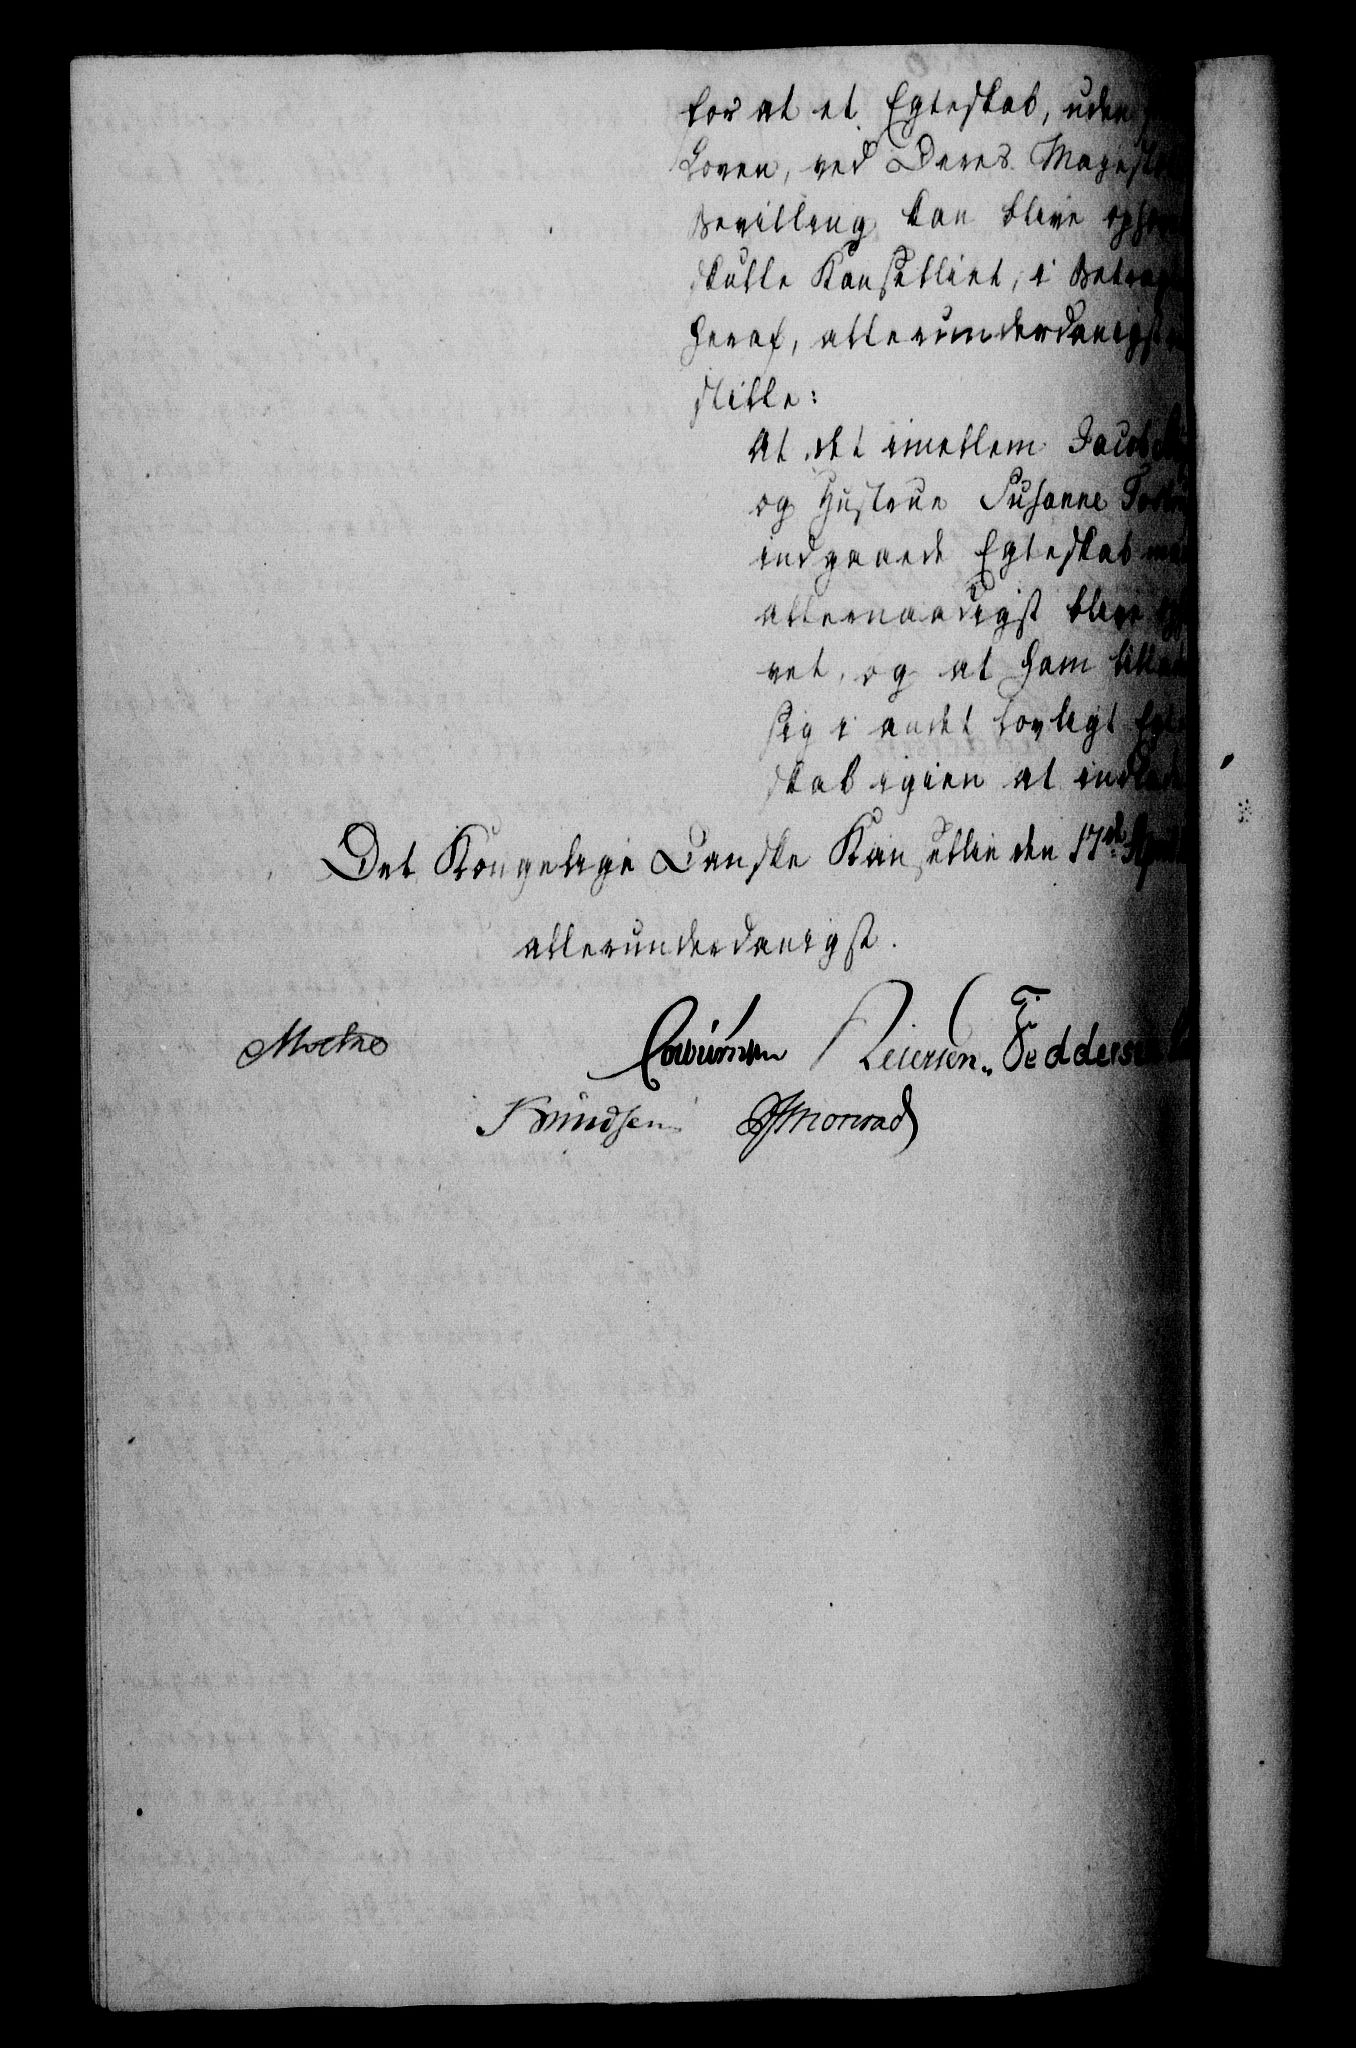 for at et Egteskab, uden
Loven, ved Deres Majestæts
Bevilling kan blive ophæ
skulle Kanselliet, i Betrag
heraf, allerunderdanigst
stille:
At det imellem Jacob
og Hustrue Susanne
indgaaede Egteskab maa
allernaadigst blive op
vet, og at ham tillad
sig i andet lovligt Egte
skab igien at indlade
Det Kongelige Danske Kansellie den 17de April
allerunderdanigst.
Moltke Cold Reiersen. Feddersen
Knudsen Monrad